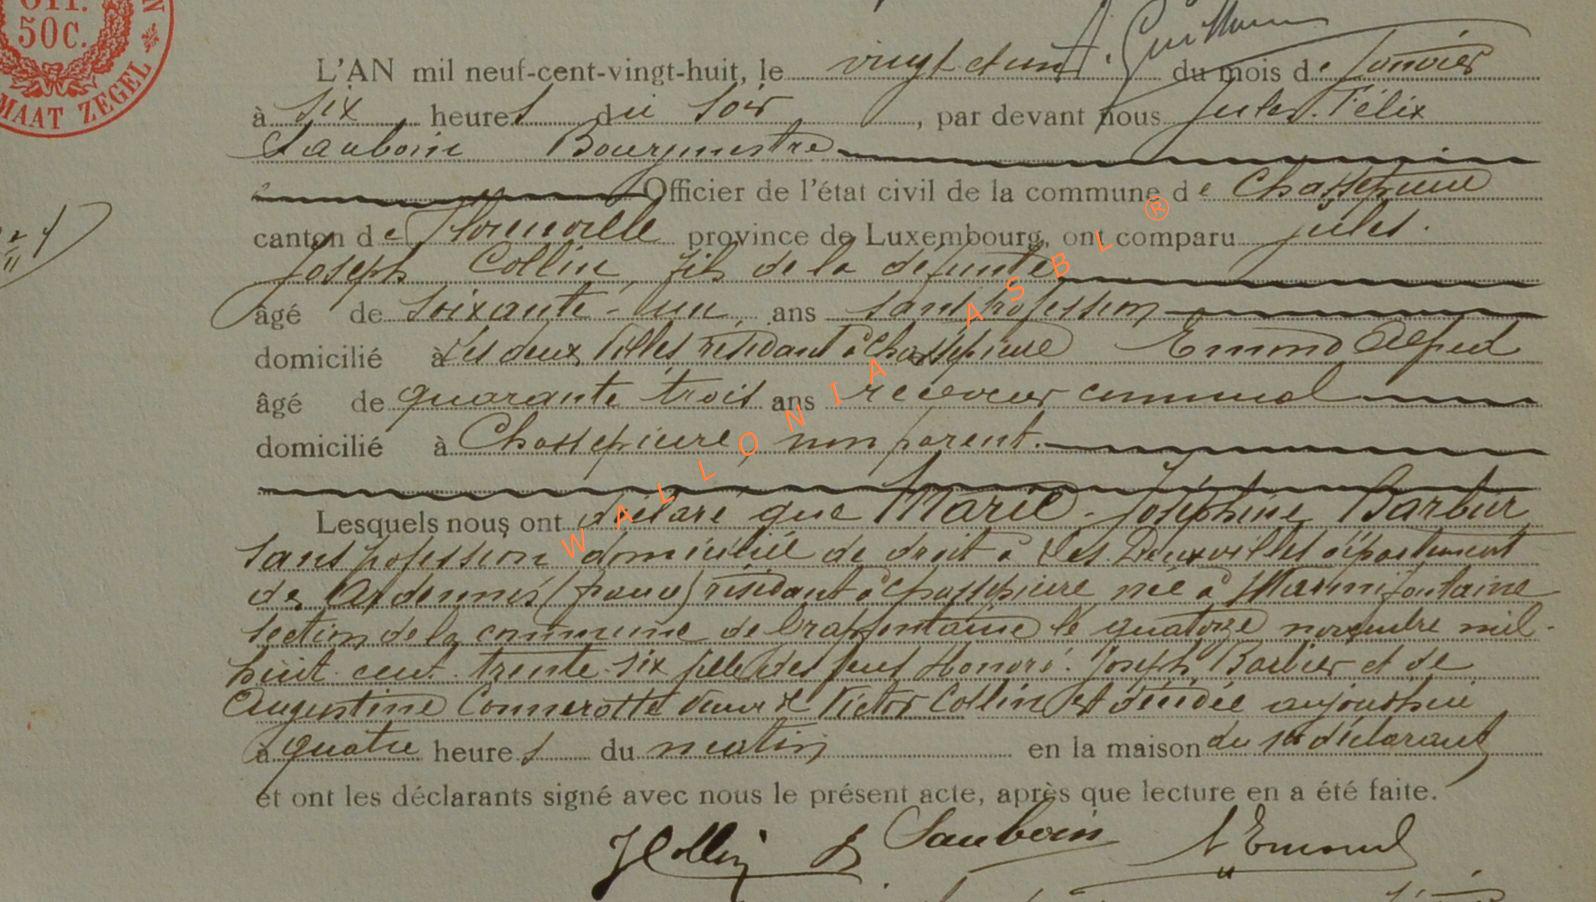 50C.
MAAT ZEGEL
A. Guillaume
L'AN mil neuf-cent-vingt-huit, le vingt et un du mois de Janvier
à six heures du soir, par devant nous Jules. Félix
Sauboin Bourgmestre
Officier de l'état civil de la commune de Chassepierre
canton de Florenville province de Luxembourg, ont comparu Jules.
Joseph Collin, fils de la defunte
âgé de soixante-un ans sans profession
domicilié à Les deux villes résidant à Chassepierre Emond Alfred
âgé de quarante trois ans receveur communal
domicilié à Chassepierre, non parent.
Lesquels nous ont déclaré que Marie-Joséphine Barbier
sans profession domiciliée de droit à Les Deux villes département
des Ardennes (france) résidant à Chassepierre née à
section de la commune de le quatorze novembre mil-
huit cent trente six fille des feus Honoré. Joseph Barbier et de
Augustine Connerotte veuve de Victor Collin est décédée aujourdhui
à quatre heures du matin en la maison du 1er déclarant
et ont les déclarants signé avec nous le présent acte, après que lecture en a été faite.
JCollin Sauboin A Emond
WALLONIA ASBL ®